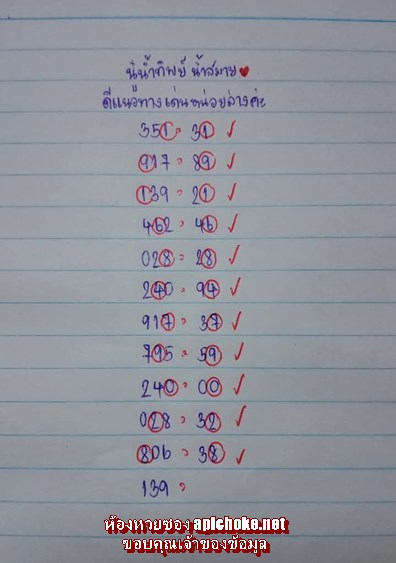 นู๋น้ำทิพย์ น้ำสบาย♥
ดีแนวทางเด่นหน่วยล่างค่ะ
351 = 31 ✓
917 = 89 ✓
139 = 21 ✓
462 = 46 ✓
028 = 28 ✓
240 = 94 ✓
917 = 37 ✓
795 = 59 ✓
240 = 00 ✓
028 = 32 ✓
806 = 38 ✓
139 =
ห้องหวยซอง apichoke.net
ขอบคุณเจ้าของข้อมูล